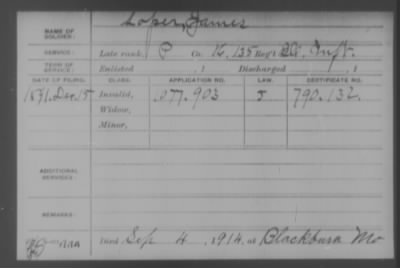 Loper, James
NAME OF SOLDIER:
SERVICE: Late rank, P Co. K, 135 Reg't Ill. Inft.
TERM OF SERVICE: Enlisted , 1 Discharged , 1
DATE OF FILING. CLASS. APPLICATION NO. LAW. CERTIFICATE NO.
1891. Dec. 15 Invalid, 1077.903 J 790.132.
Widow,
Minor,
ADDITIONAL SERVICES:
REMARKS:
Died Sep 4, 1914, at Blackburn Mo